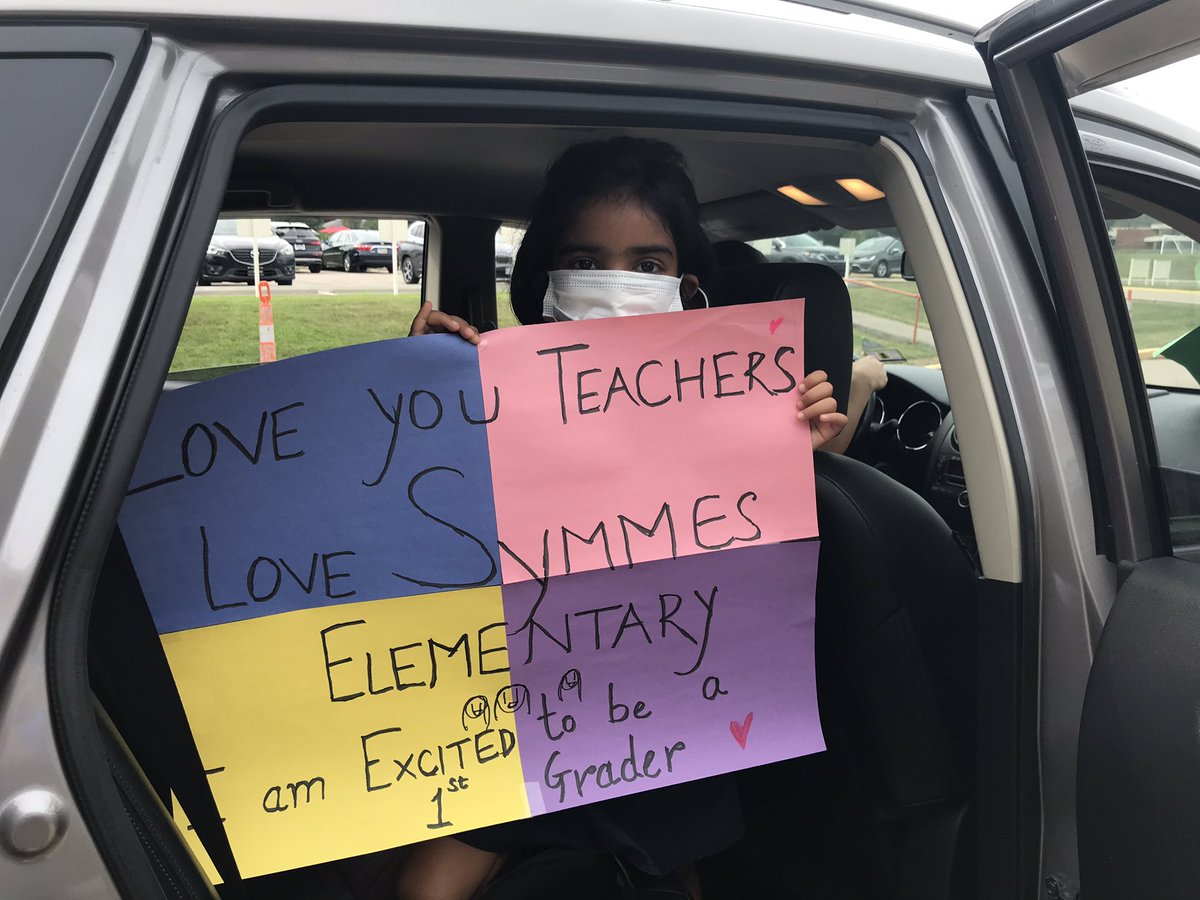 LOVE yOU TEACHERS
LOVE SYMMES
ELEMENTARY
I am EXCITED to be a
1st Grader